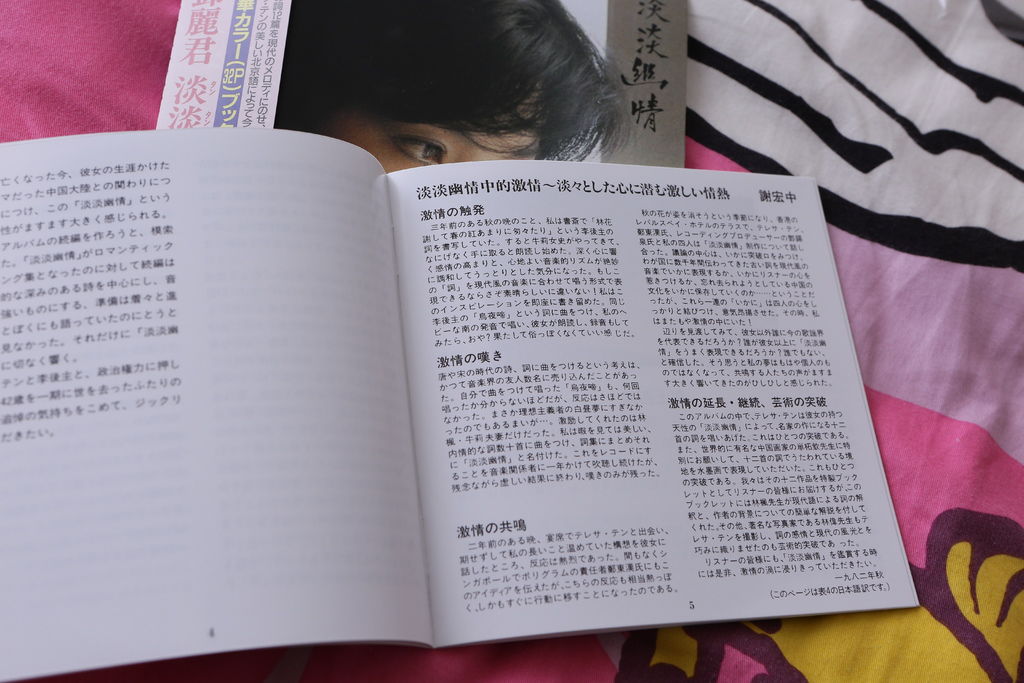 鄧麗君 淡淡
華カラー(32P)ブック
詩詞12篇を現代のメロディにのせ、
テンの美しい北京語によって今
淡淡幽情
亡くなった今、彼女の生涯かけた
マだった中国大陸との関わりにつ
につけ、この「淡淡幽情」という
性がますます大きく感じられる。
アルバムの続編を作ろうと、模索
た。「淡淡幽情」がロマンティック
ング集となったのに対して続編は
的な深みのある詩を中心にし、音
強いものにする、準備は着々と進
とぼくにも語っていたのにとうと
見なかった。それだけに「淡淡幽
に切なく響く。
テンと李後主と、政治権力に押し
42歳を一期に世を去ったふたりの
追悼の気持ちをこめて、ジックリ
だきたい。
4
淡淡幽情中的激情～淡々とした心に潜む激しい情熱 謝宏中
激情の触発
三年前のある秋の晩のこと、私は書斎で「林花
謝して春の紅あまりに匆々たり」という李後主の
詞を書写していた。すると牛莉女史がやってきて、
なにげなく手に取ると朗読し始めた。深く心に響
く感情の高まりと、心地よい音楽的リズムが絶妙
に調和してうっとりとした気分になった。もしこ
の「詞」を現代風の音楽に合わせて唱う形式で表
現できるならさぞ素晴らしいに違いない！私はこ
のインスピレーションを即座に書き留めた。同じ
李後主の「烏夜啼」という詞に曲をつけ、私のヘ
ビーな南の発音で唱い、彼女が朗読し、録音もして
みたら、おや？果たして俗っぽくなくていい感じだ。
激情の嘆き
唐や宋の時代の詩、詞に曲をつけるという考えは、
かつて音楽界の友人数名に売り込んだことがあっ
た。自分で曲をつけて唱った「烏夜啼」も、何回
唱ったか分からないほどだが、反応はさほどでは
なかった。まさか理想主義者の白昼夢にすぎなか
ったのでもあるまいが…。激励してくれたのは林
楓・牛莉夫妻だけだった。私は暇を見ては美しい、
内情的な詞数十首に曲をつけ、詞集にまとめそれ
に「淡淡幽情」と名付けた。これをレコードにす
ることを音楽関係者に一年かけて吹聴し続けたが、
残念ながら虚しい結果に終わり、嘆きのみが残った。
激情の共鳴
二年前のある晩、宴席でテレサ・テンと出会い、
期せずして私の長いこと温めていた構想を彼女に
話したところ、反応は熱烈であった。間もなくシ
ンガポールでポリグラムの責任者鄭東漢氏にもこ
のアイディアを伝えたが、こちらの反応も相当熱っぽ
く、しかもすぐに行動に移すことになったのである。
秋の花が姿を消そうという季節になり、香港の
レパルスベイ・ホテルのテラスで、テレサ・テン、
鄭東漢氏、レコーディングプロデューサーの鄧錫
泉氏と私の四人は「淡淡幽情」制作について話し
合った。議論の中心は、いかに突破口をみつけ、
わが国に数千年間伝わってきた古い詞を現代風の
音楽でいかに表現するか、いかにリスナーの心を
惹きつけるか、忘れ去られようとしている中国の
文化をいかに保存していくのか……ということだ
ったが、これら一連の「いかに」は四人の心をし
っかりと結びつけ、意気昂揚させた。その時、私
はまたもや激情の中にいた！
辺りを見渡してみて、彼女以外誰に今の歌謡界
を代表できるだろうか？誰が彼女以上に「淡淡幽
情」をうまく表現できるだろうか？誰でもない、
と確信した、そう思うと私の夢はもはや個人のも
のではなくなって、共鳴する人たちの声がますます
大きく響いてきたのがひしひしと感じられた。
激情の延長・継続、芸術の突破
このアルバムの中で、テレサ・テンは彼女の持つ
天性の「淡淡幽情」によって、名家の作になる十二
首の詞を唱いあげた。これはひとつの突破である。
また、世界的に有名な中国画家の単柘飲先生に特
別にお願いして、十二首の詞でうたわれている境
地を水墨画で表現していただいた。これもひとつ
の突破である。我々はその十二作品を特製ブック
レットとしてリスナーの皆様にお届けするが、この
ブックレットには林楓先生が現代語による詞の解
釈と、作者の背景についての簡単な解説を付して
くれた。その他、著名な写真家である林偉先生もテ
レサ・テンを撮影し、詞の感情と現代の風光とを
巧みに織りませたのも芸術的突破であった。
リスナーの皆様にも、「淡淡幽情」を鑑賞する時
には是非、激情の渦に浸りきっていただきたい。
一九八二年秋
(このページは表4の日本語訳です。)
5